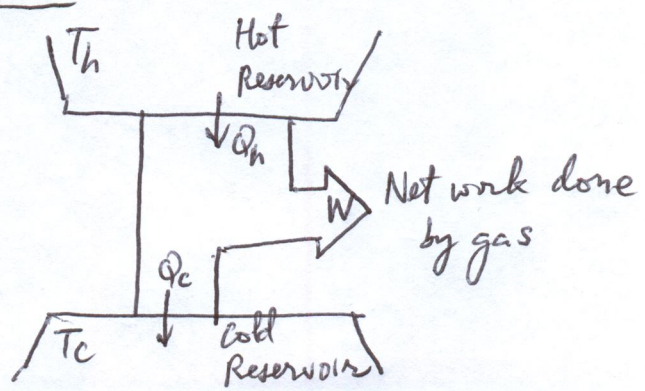 Th
Hot
Reservoir
Qh
W
Net work done
by gas
Qc
Tc
Cold
Reservoir